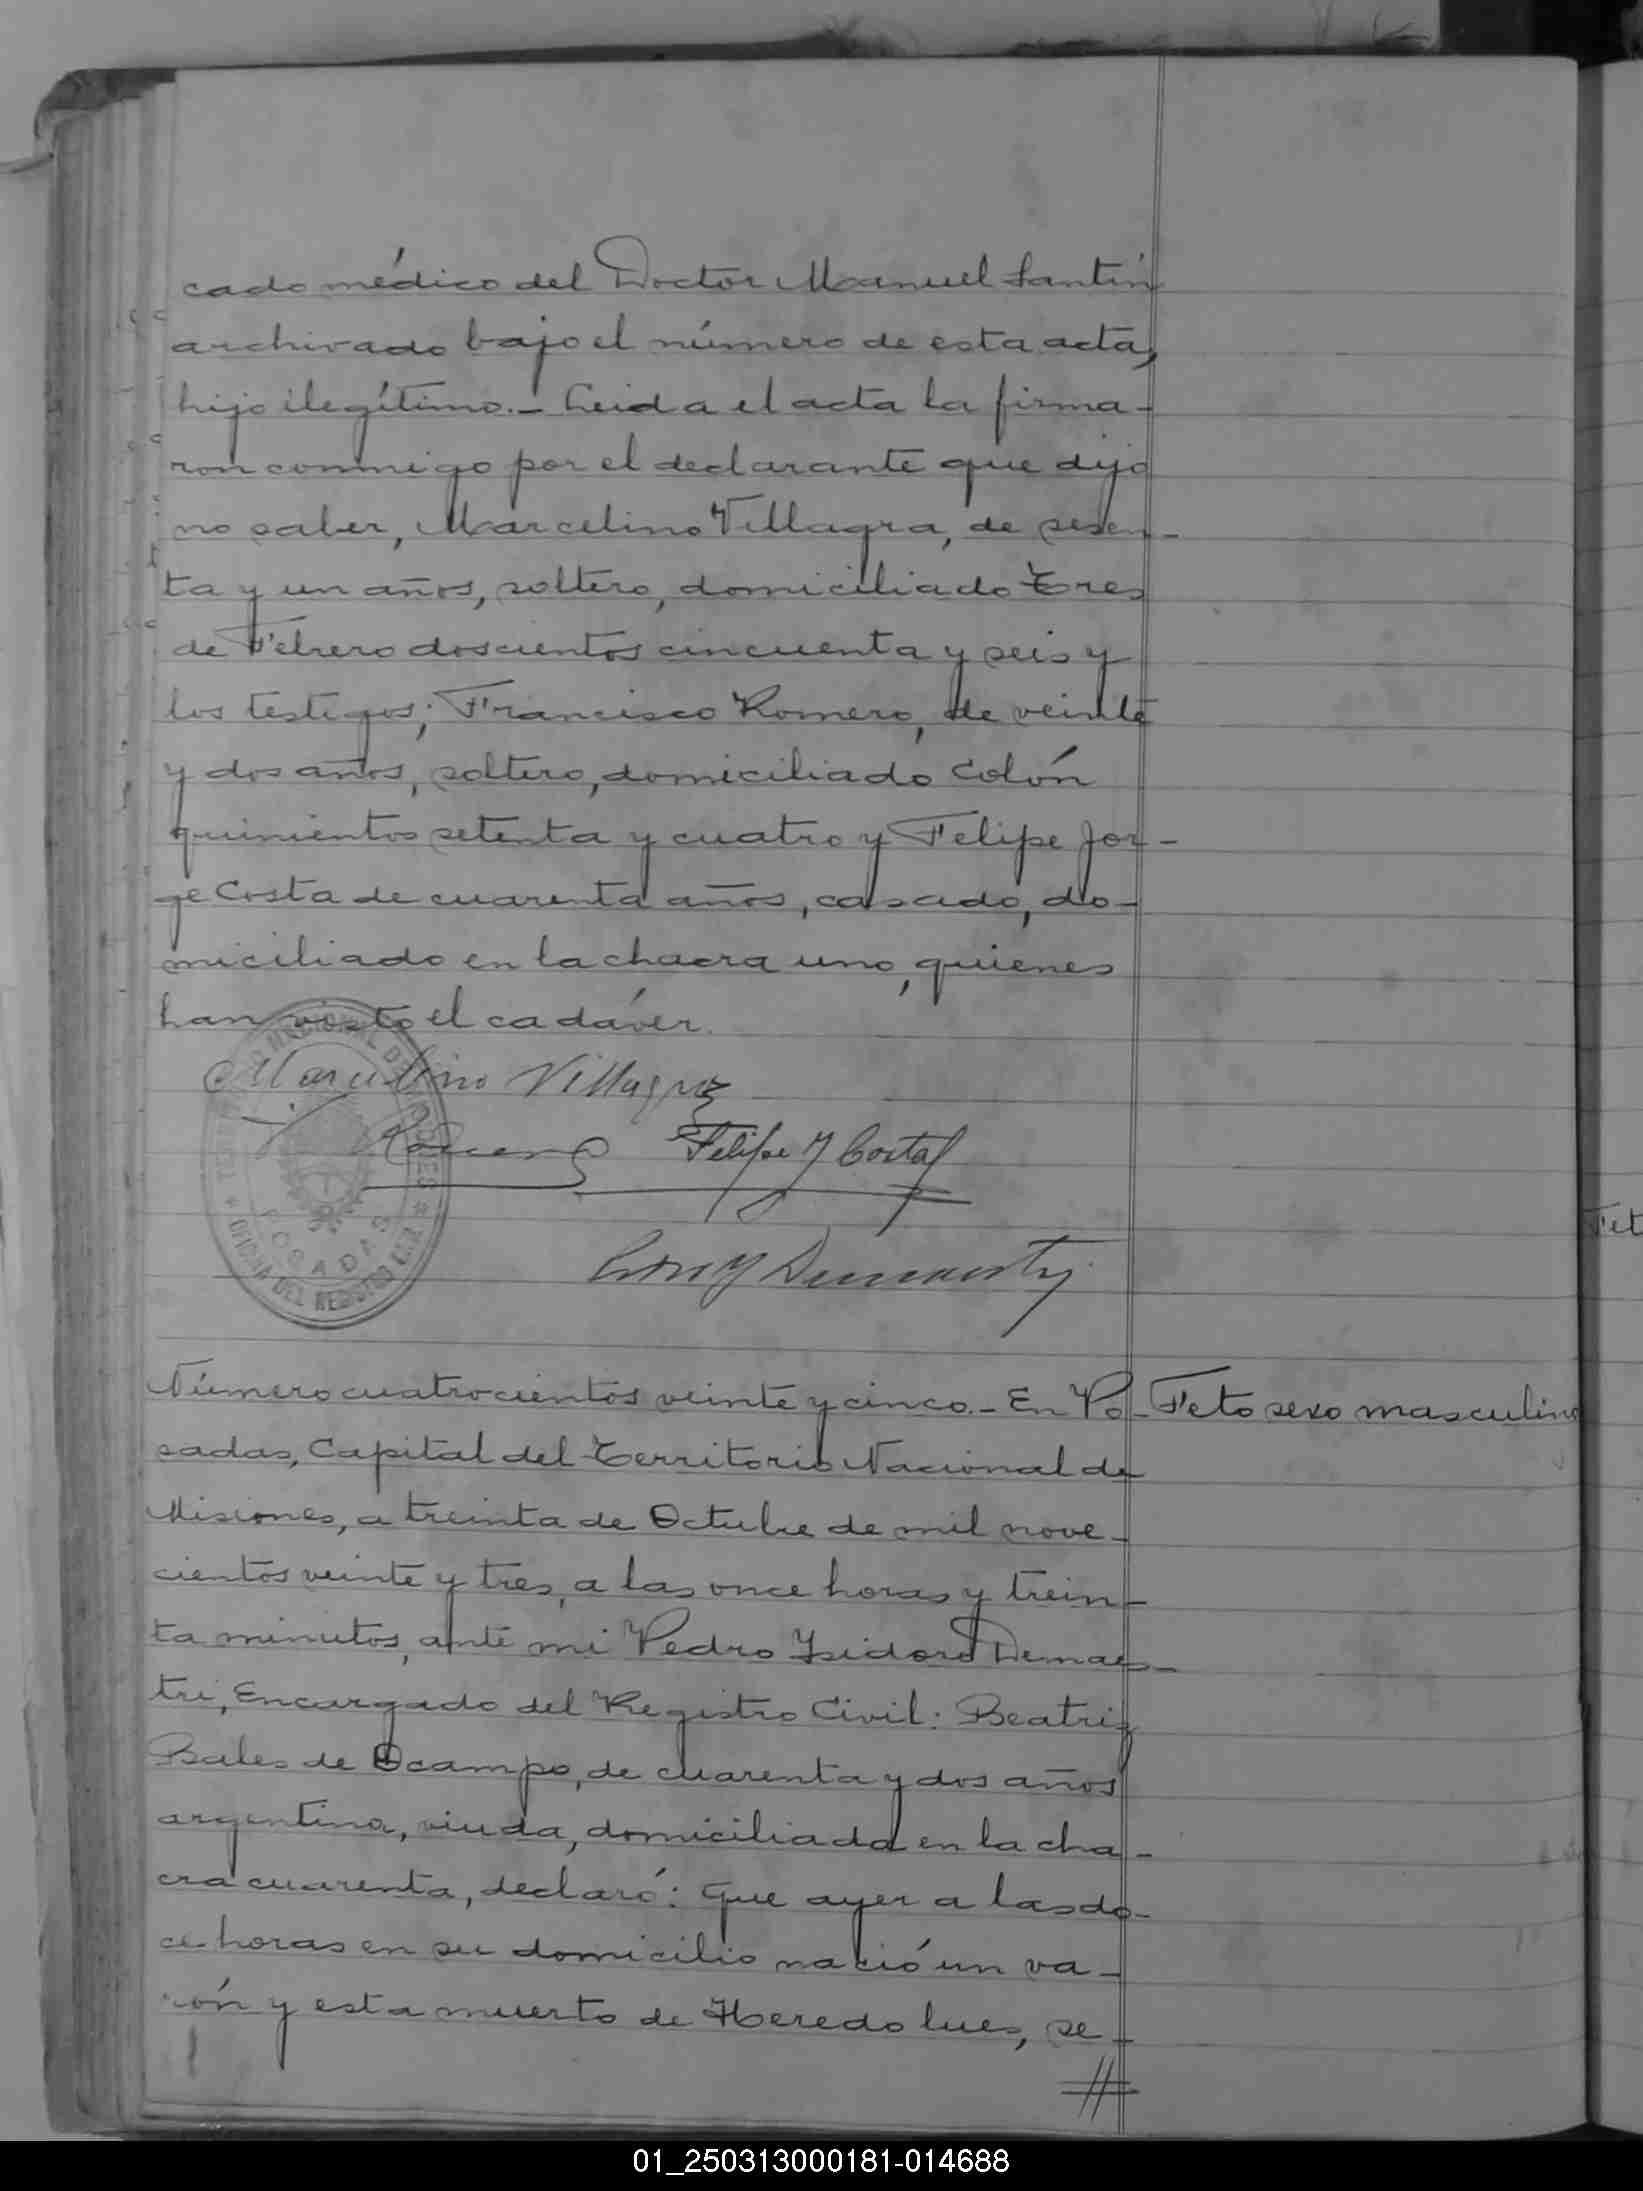 cado médico del Doctor Manuel Santin
archivado bajo el número de esta acta,
hijo ilegítimo.- Leida el acta la firma-
ron conmigo por el declarante que dijo
no saber, Marcelino Villagra, de sesen-
ta y un años, soltero, domiciliado Tres
de Febrero doscientos cincuenta y seis y
los testigos; Francisco Romero, de veinte
y dos años, soltero, domiciliado Colón
quinientos setenta y cuatro y Felipe Jor-
ge Costa de cuarenta años, casado, do-
miciliado en la chacra uno, quienes
han visto el cadáver.
Marcelino Villagra
Romero Felipe J Costa
POSADAS
OFICINA DEL REGISTRO CIVIL
Fet
Número cuatrocientos veinte y cinco.- En Po- Feto sexo masculino
sadas, Capital del Territorio Nacional de
Misiones, a treinta de Octubre de mil nove-
cientos veinte y tres, a las once horas y trein-
ta minutos, ante mi Pedro Isidoro Demaes-
tri, Encargado del Registro Civil: Beatriz
Bales de Ocampo, de cuarenta y dos años
argentina, viuda, domiciliada en la cha-
cra cuarenta, declaró: Que ayer a las do-
ce horas en su domicilio nació un va-
rón y esta muerto de Heredo lues, se-
01_250313000181-014688